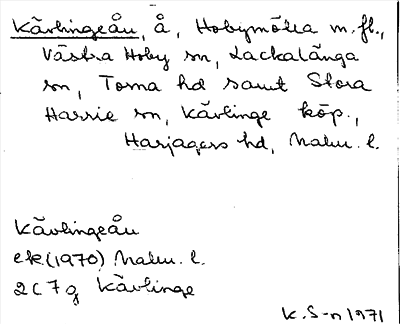 Kävlingeån, å, Hobymölla m.fl.,
Västra Hoby sn, Lackalänga
sn, Torna hd samt Stora
Harrie sn, Kävlinge köp.,
Harjagers hd, Malm. l.
Kävlingeån
ek (1970) Malm. l.
2C7g Kävlinge
K.S-n 1971